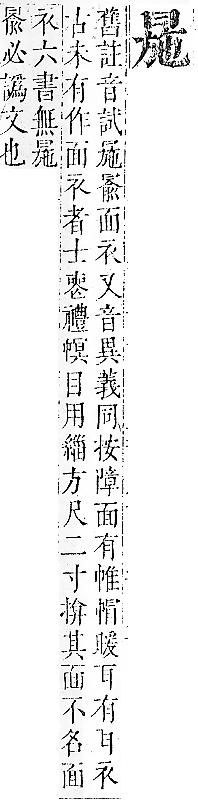 舊註音試面衣又音異義同按障面有帷帽暖耳有耳衣
古未有作面衣者士喪禮幎目用緇方尺二寸揜其面不名面
衣六書無
必譌文也